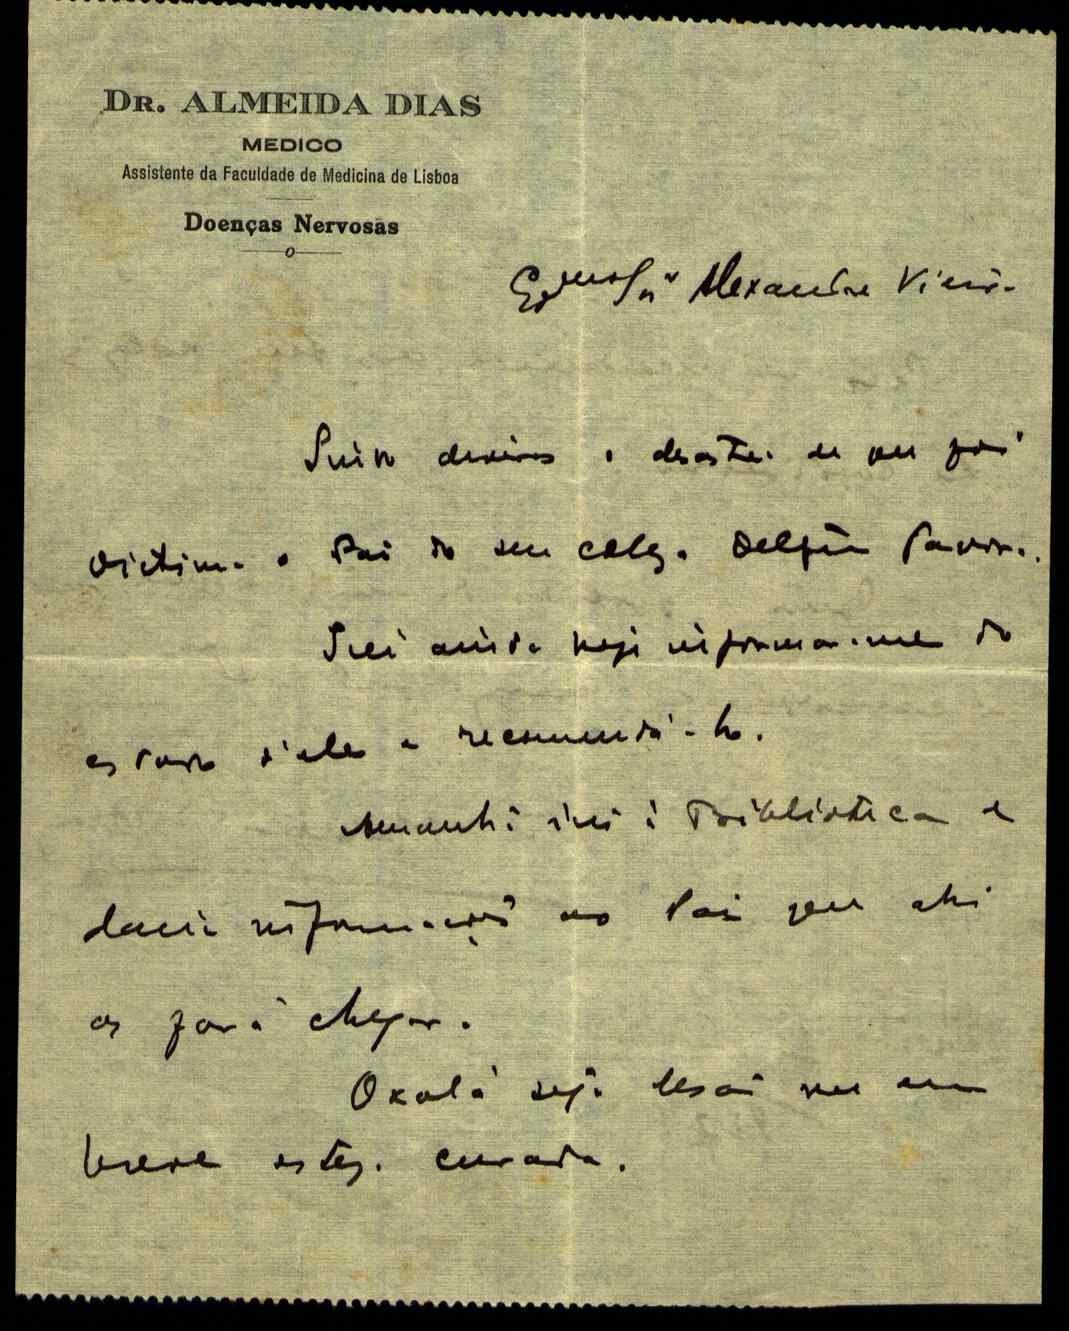 DR. ALMEIDA DIAS
MEDICO
Assistente da Faculdade de Medicina de Lisboa
Doenças Nervosas
Exmo Sñr Alexandre Vieira
Sinto deveras o desastre de que foi
victima o Pai do seu colega Delfim
Irei ainda hoje informar-me do
estado d'ele e recomendá-lo.
Amanhã irei á Biblioteca e
darei informação ao Pai que ahi
as fará chegar.
Oxalá seja lesão que em
breve esteja curada.